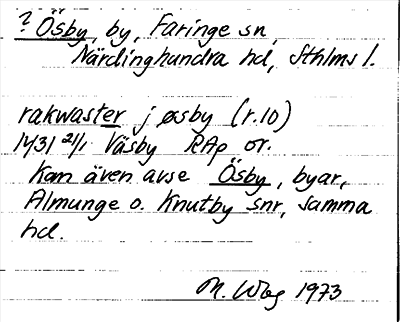 ? Ösby, by, Faringe sn,
Närdinghundra hd, Sthlms l.
rakwaster j øsby (r.10)
1431 21/1 Väsby RAp or.
Kan även avse Ösby, byar,
Almunge o. Knutby snr, samma
hd.
M. Wbg 1973